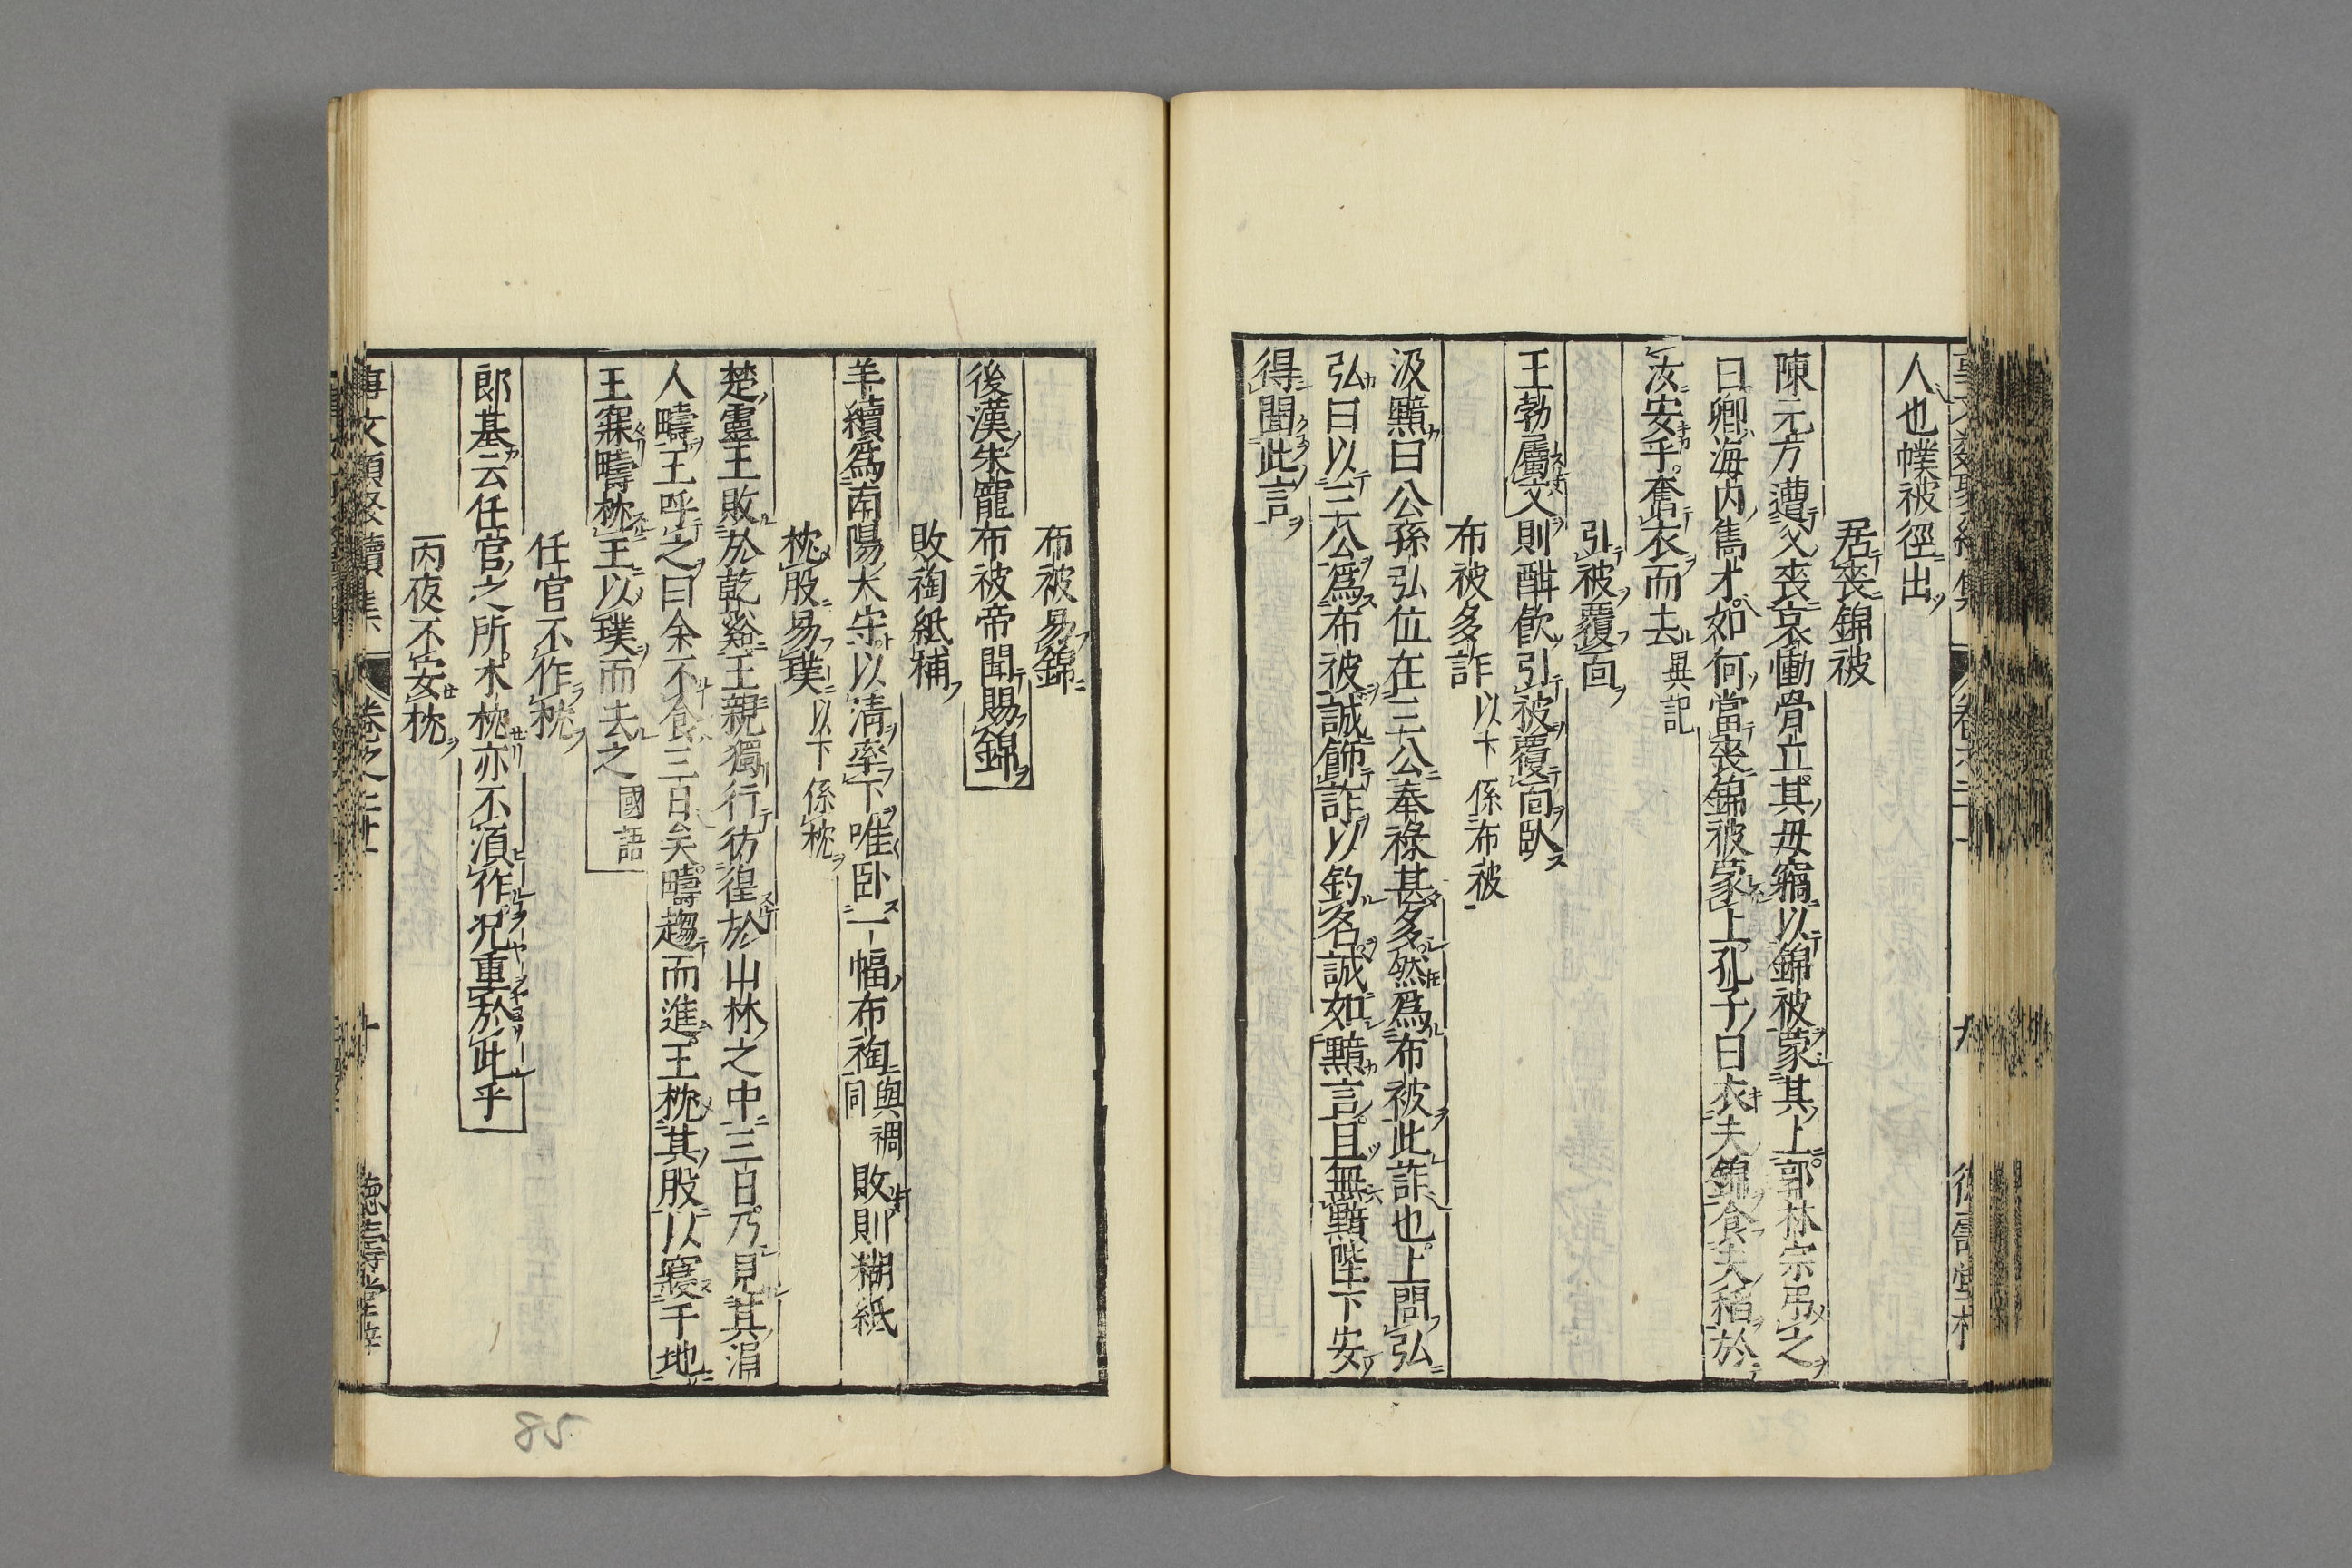 人也幞被徑出
居喪錦被
陳元方遭父喪哀慟骨立其母竊以錦被蒙其上郭林宗弔之
曰卿海内雋才如何當喪錦被蒙上孔子曰衣夫錦食夫稻於
汝安乎奮衣而去 異記
引被覆面
王勃屬文則酣飲引被覆面臥
布被多詐 以下係布被
汲黯曰公孫弘位在三公奉祿甚多然爲布被此詐也上問弘
弘曰以三公爲布被誠飾詐以釣名誠如黯言且無黯陛下安
得聞此言
布被易錦
後漢朱寵布被帝聞賜錦
敗裯紙補
羊續爲南陽太守以清率下唯卧一幅布裯 與裯同 敗則糊紙
枕股易璞 以下係枕
楚靈王敗於乾谿王親獨行彷徨於山林之中三日乃見其涓
人疇王呼之曰余不食三日矣疇趨而進王枕其股以寢于地
王寐疇枕王以璞而去之 國語
任官不作枕
郎基云任官之所木枕亦不須作況重於此乎
丙夜不安枕
事文類聚續集 卷之二十一 十 德壽堂梓